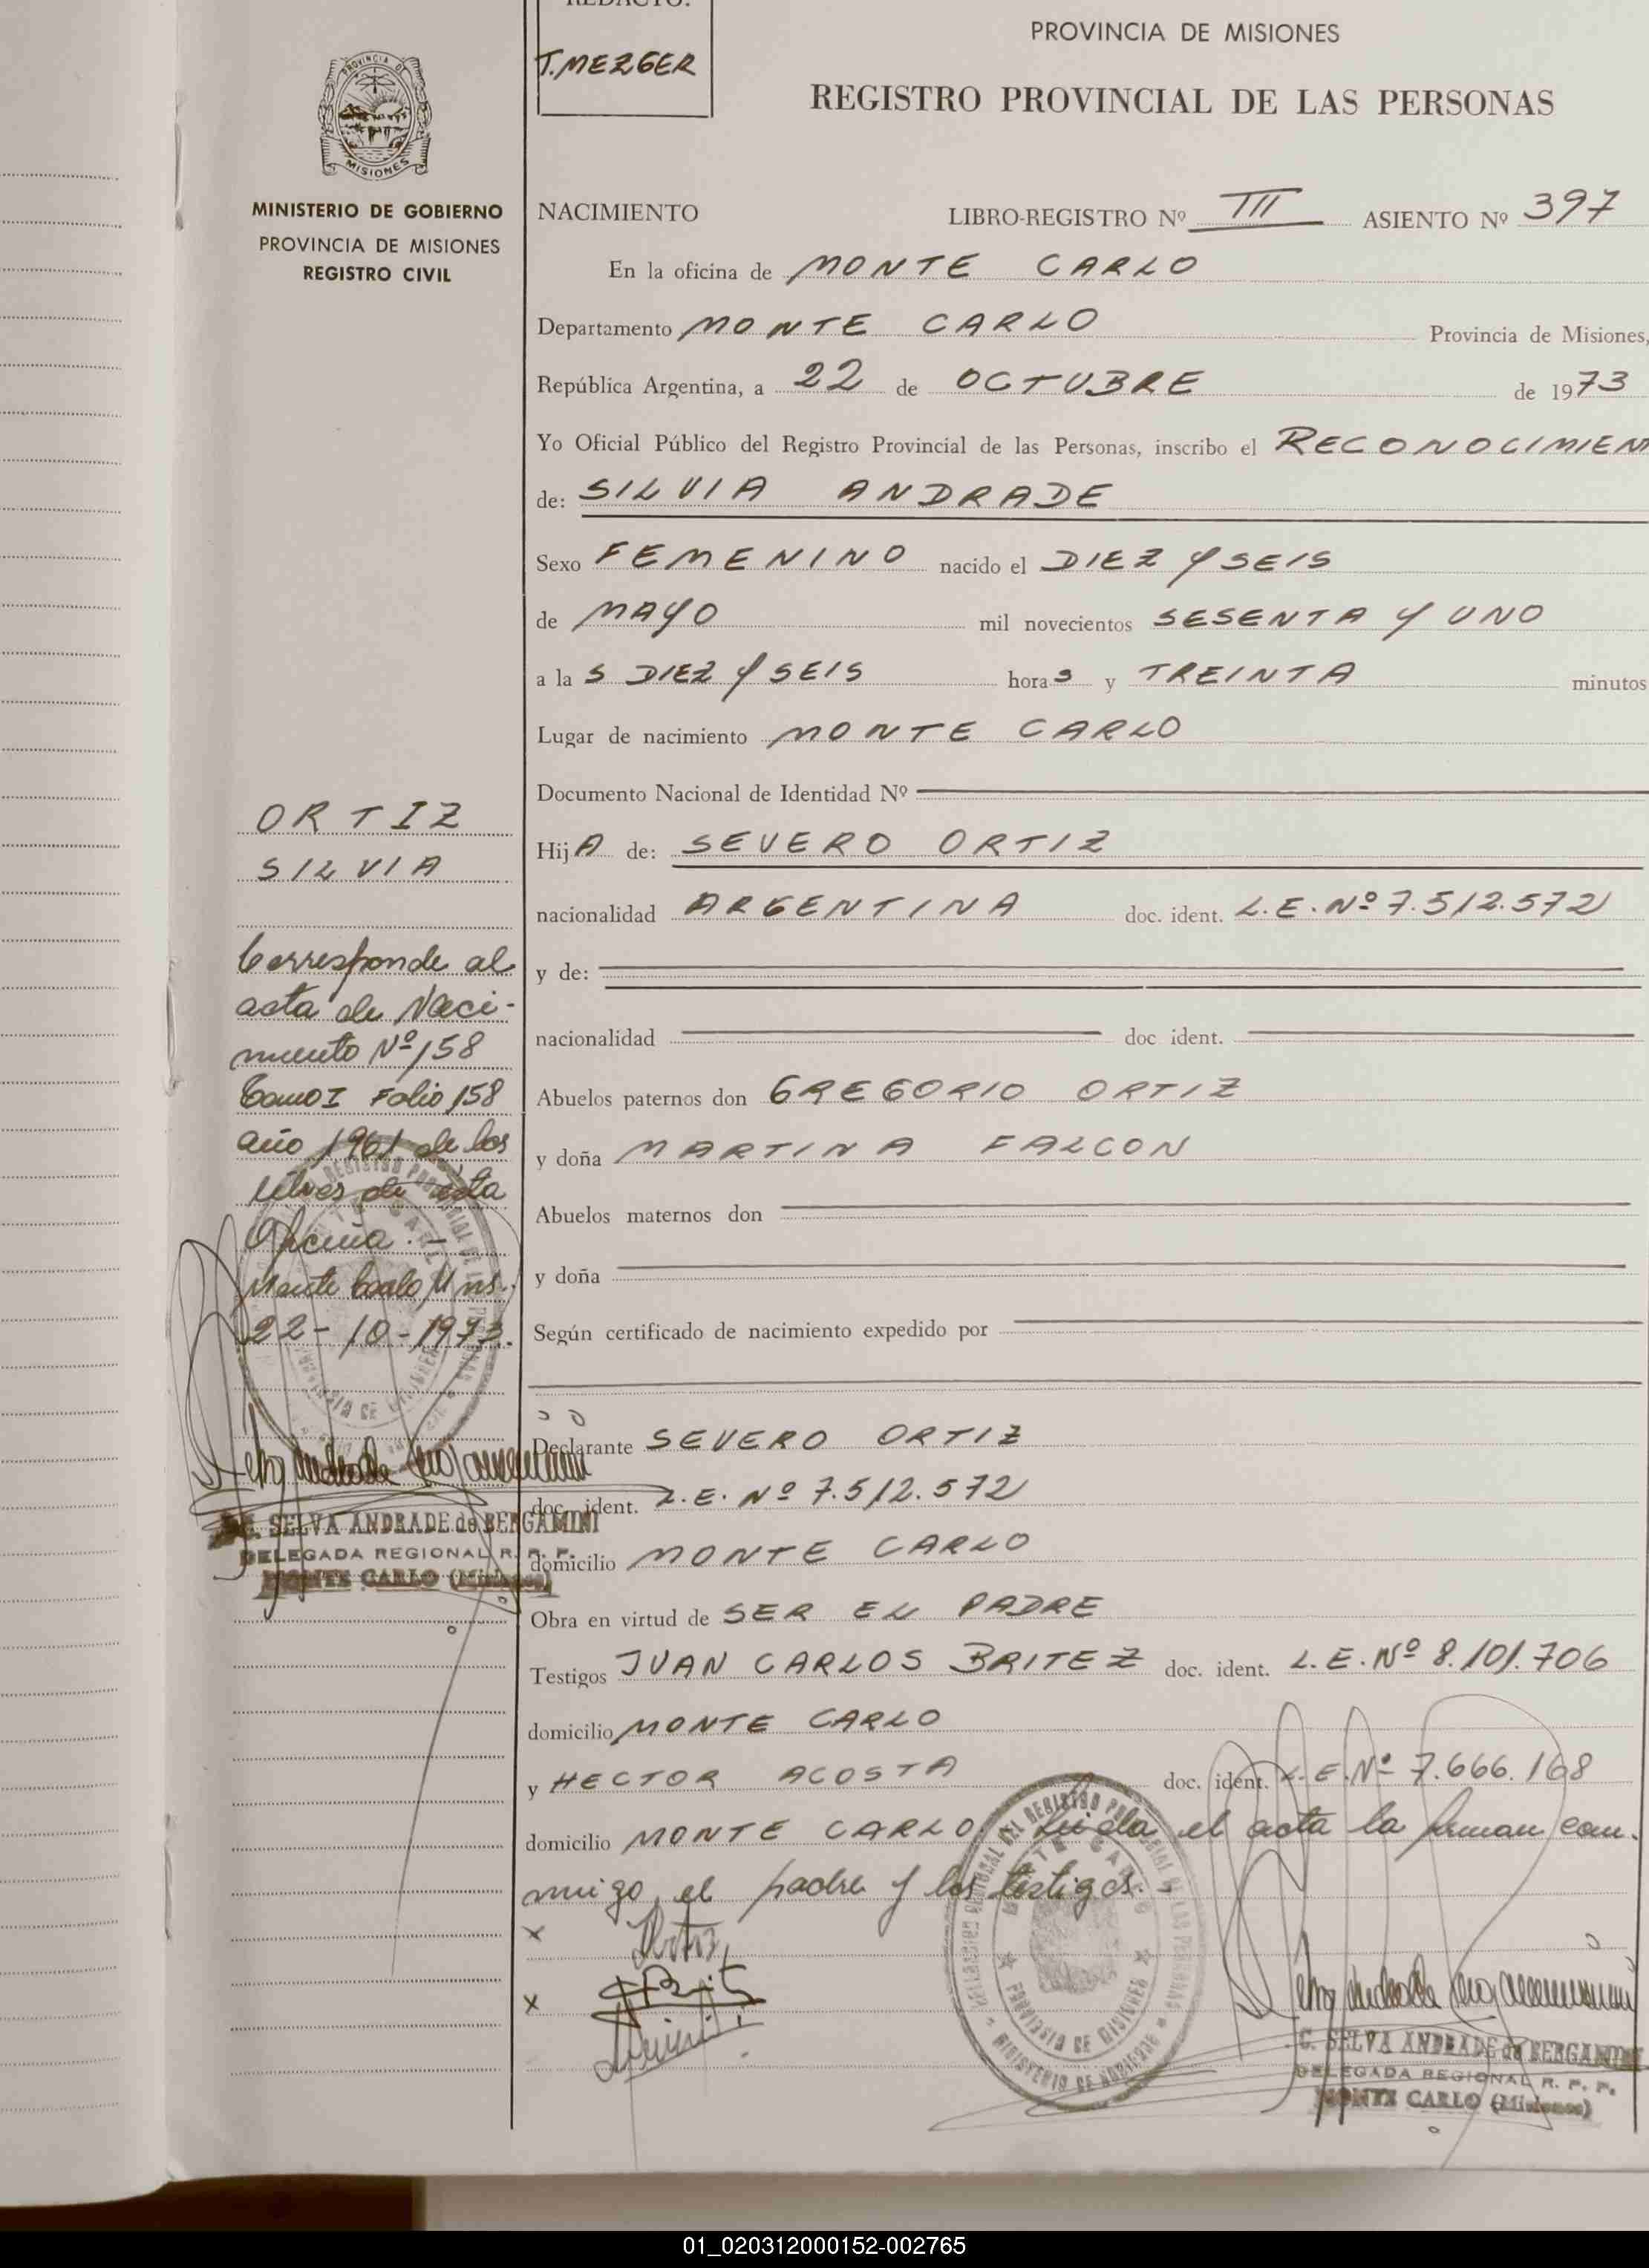 REDACTO:
T. MEZGER
PROVINCIA DE MISIONES
REGISTRO PROVINCIAL DE LAS PERSONAS
PROVINCIA DE
MISIONES
MINISTERIO DE GOBIERNO
PROVINCIA DE MISIONES
REGISTRO CIVIL
NACIMIENTO LIBRO-REGISTRO Nº III ASIENTO Nº 397
En la oficina de MONTE CARLO
Departamento MONTE CARLO Provincia de Misiones,
República Argentina, a 22 de OCTUBRE de 1973
Yo Oficial Público del Registro Provincial de las Personas, inscribo el RECONOCIMIEN
de: SILVIA ANDRADE
Sexo FEMENINO nacido el DIEZ Y SEIS
de MAYO mil novecientos SESENTA Y UNO
a la S DIEZ Y SEIS hora s y TREINTA minutos
Lugar de nacimiento MONTE CARLO
Documento Nacional de Identidad Nº
Hij A de: SEVERO ORTIZ
nacionalidad ARGENTINA doc. ident. L.E. Nº 7.512.572
y de:
nacionalidad doc ident.
Abuelos paternos don GREGORIO ORTIZ
y doña MARTINA FALCON
Abuelos maternos don
y doña
Según certificado de nacimiento expedido por
Declarante SEVERO ORTIZ
doc. ident. L.E. Nº 7.512.572
domicilio MONTE CARLO
Obra en virtud de SER EL PADRE
Testigos JUAN CARLOS BRITEZ doc. ident. L.E. Nº 8.101.706
domicilio MONTE CARLO
y HECTOR ACOSTA doc. ident. L.E. Nº 7.666.168
domicilio MONTE CARLO. Leida el acta la firman con
migo, el padre y los testigos.-
x Ortiz
x
ORTIZ
SILVIA
Corresponde al
acta de Naci-
miento Nº 158
Tomo I Folio 158
año 1961 de los
libros de esta
Oficina.-
Monte Carlo Mns.
22-10-1973.
C. SELVA ANDRADE de BERGAMINI
DELEGADA REGIONAL R. P. P.
MONTE CARLO (Misiones)
DELEGACION REGIONAL DEL REGISTRO PROVINCIAL DE LAS PERSONAS
MONTE CARLO
PROVINCIA DE MISIONES
MINISTERIO DE GOBIERNO
C. SELVA ANDRADE de BERGAMINI
DELEGADA REGIONAL R. P. P.
MONTE CARLO (Misiones)
01_020312000152-002765